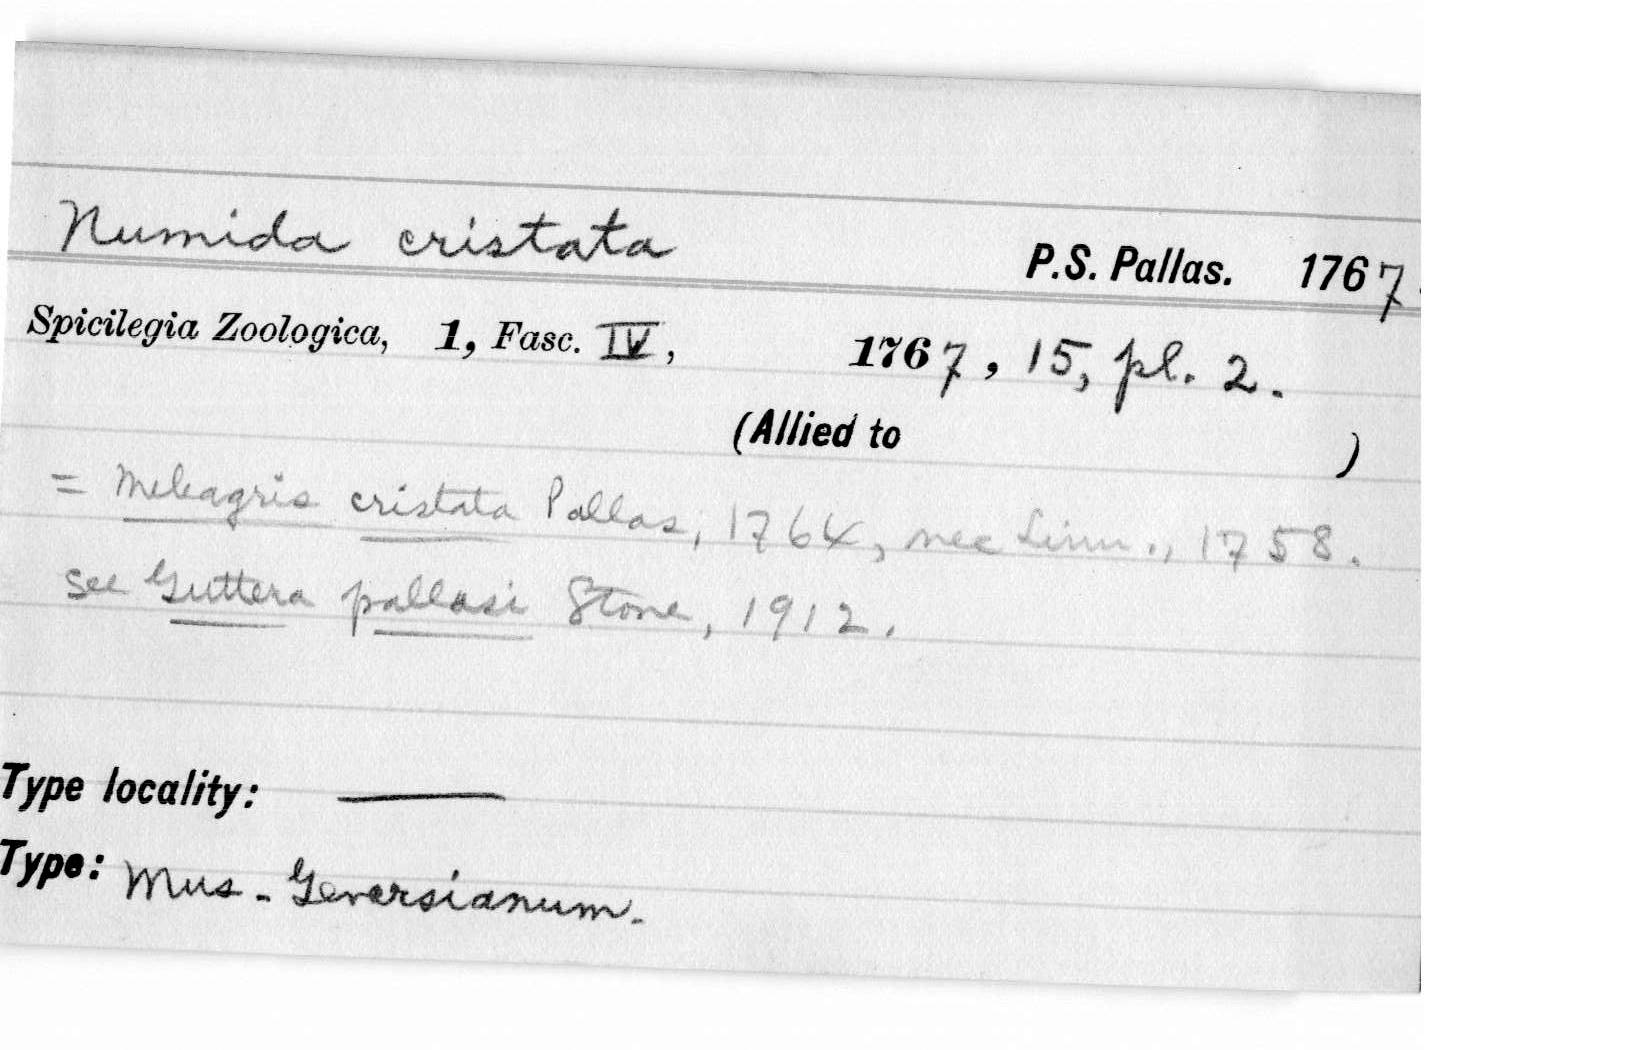 Numida cristata P.S. Pallas. 1767.
Spicilegia Zoologica, 1, Fasc. IV, 1767, 15, pl. 2.
(Allied to )
= Meleagris cristata Pallas, 1764, nec Linn., 1758.
see Guttera pallasi Stone, 1912.
Type locality: ———
Type: Mus. Geversianum.